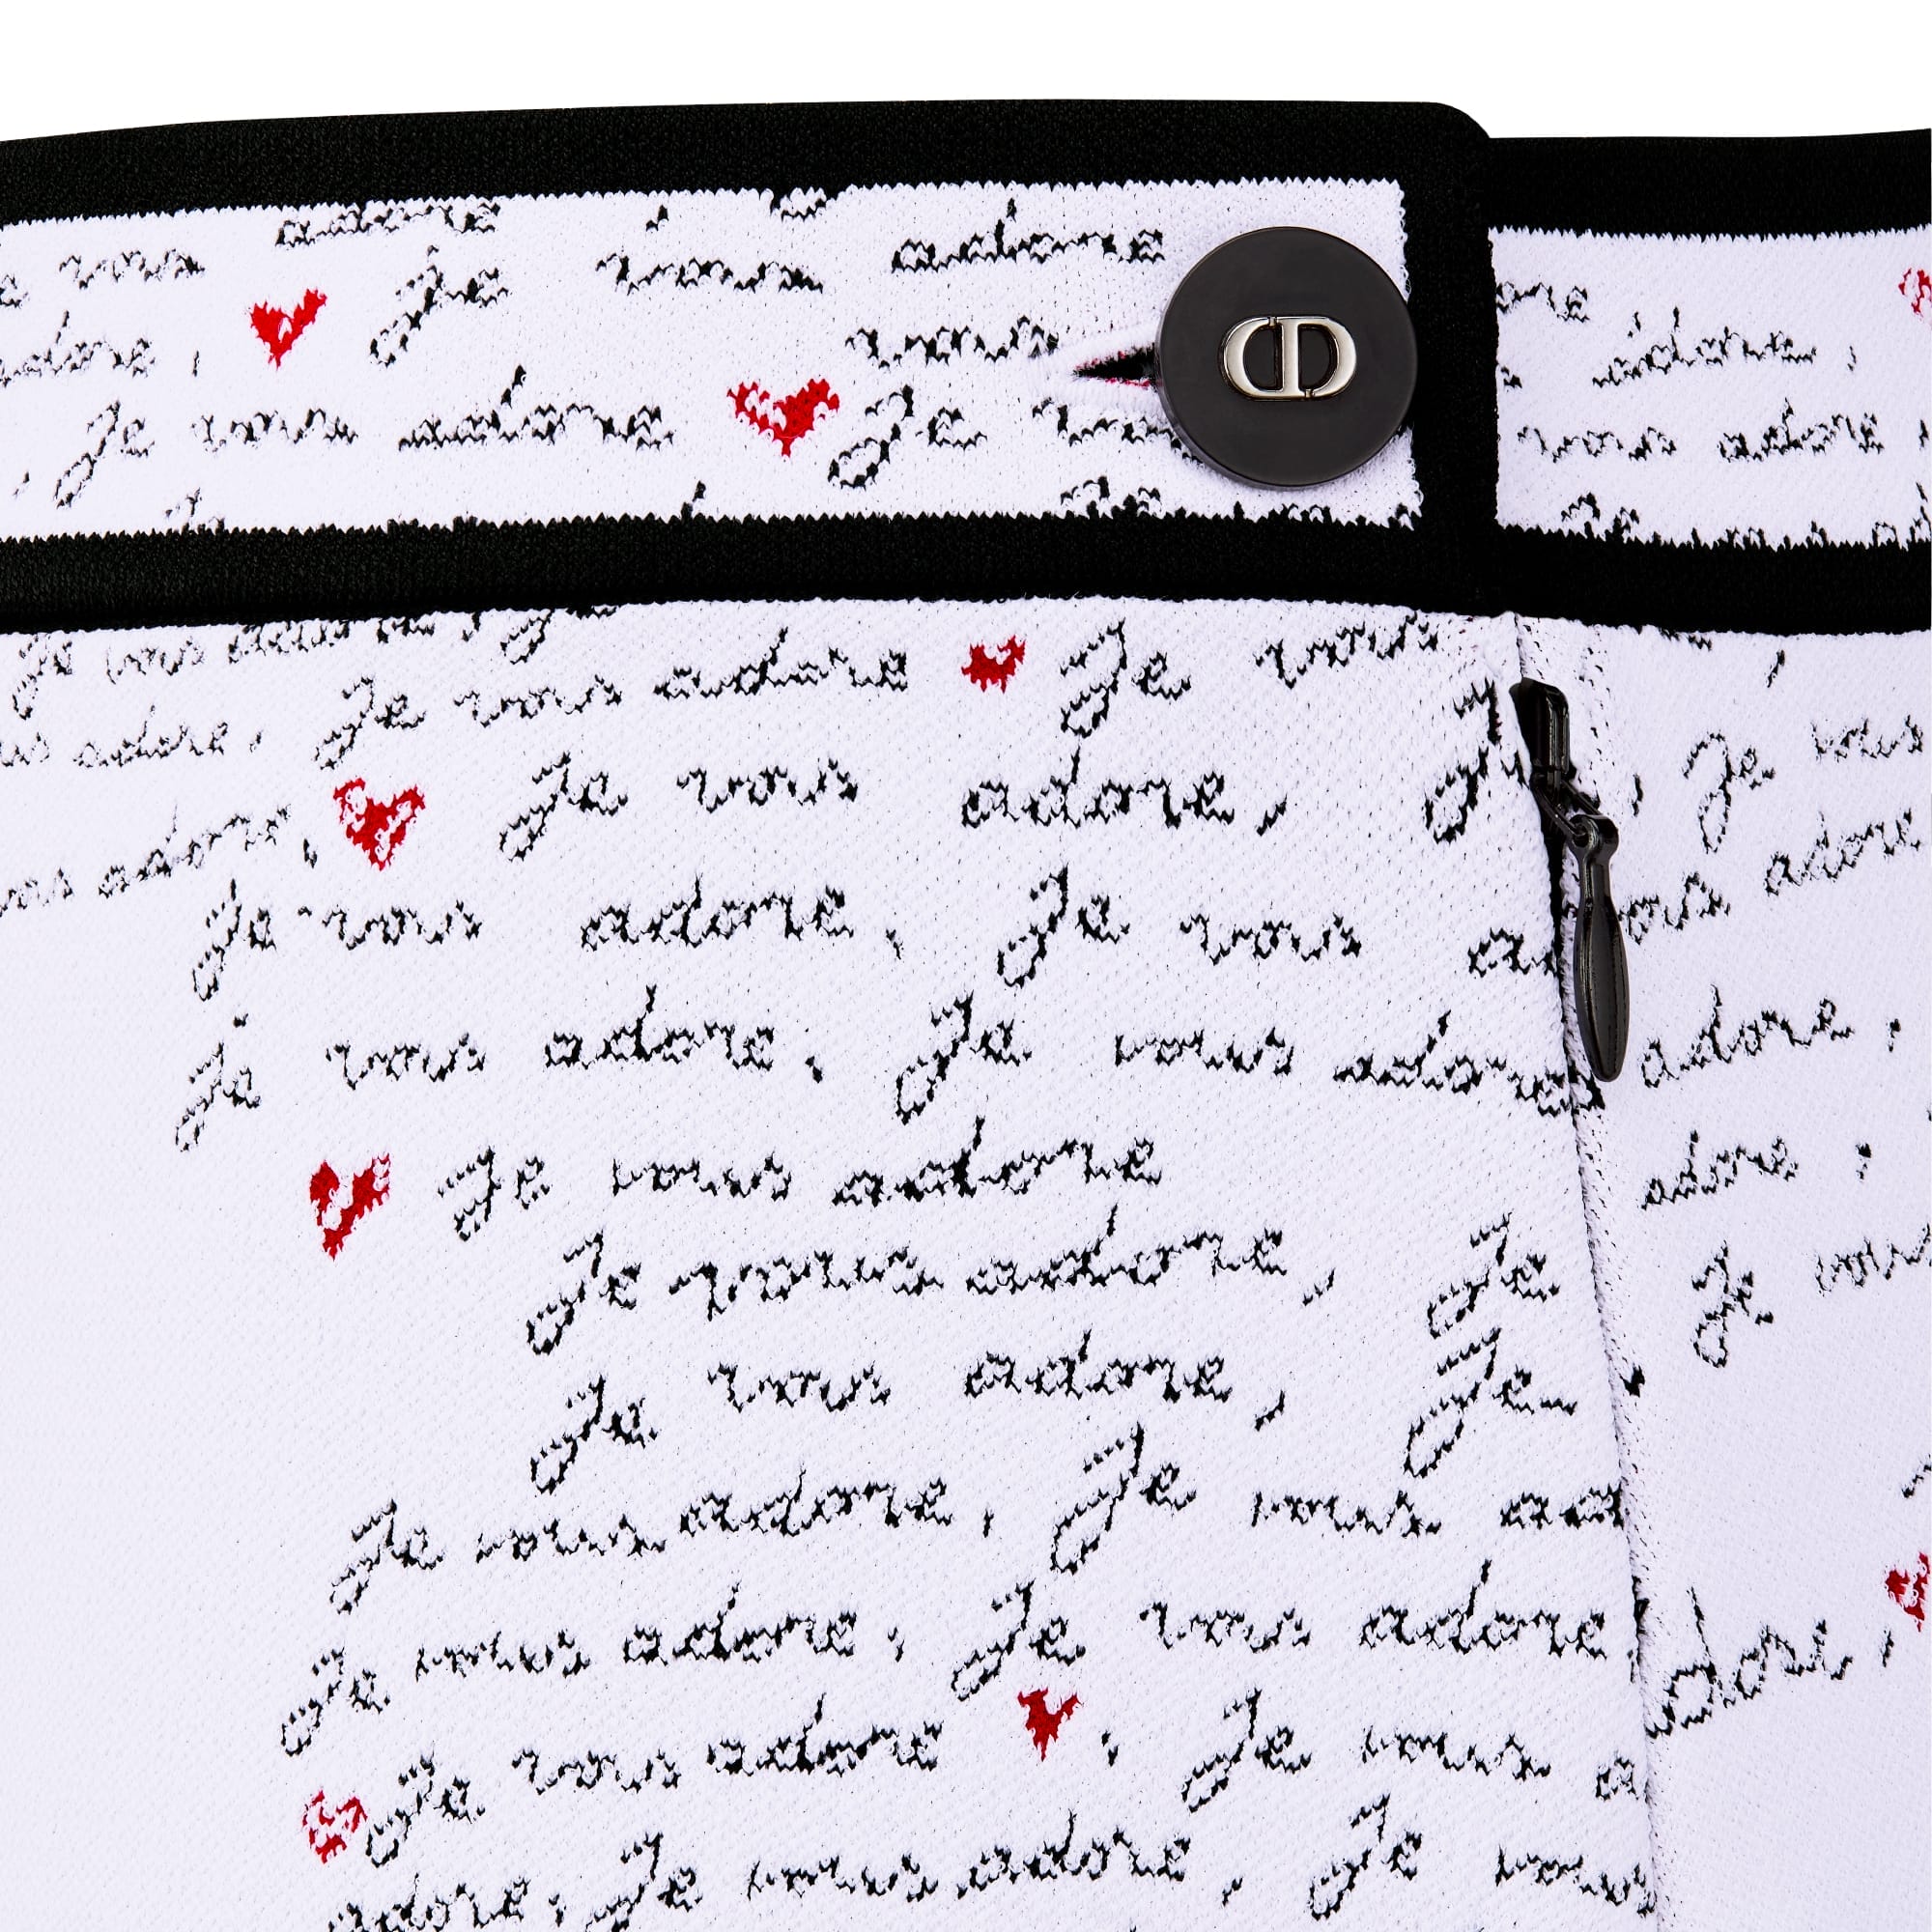 adore
vous je vous adore
adore, vous
Je vous adore Je
CD
adore,
vous adore
Je vous adore
Je vous adore Je vous
vous adore, Je vous adore, Je vous
vous adore,
Je vous adore, Je vous
vous adore
Je vous adore, Je vous adore
adore,
Je vous adore
adore,
Je vous adore, Je
Je vous
Je vous adore, Je
Je vous adore, Je vous
Je vous adore, Je vous adore
Je vous adore, Je vous
adore, Je vous adore, Je vous